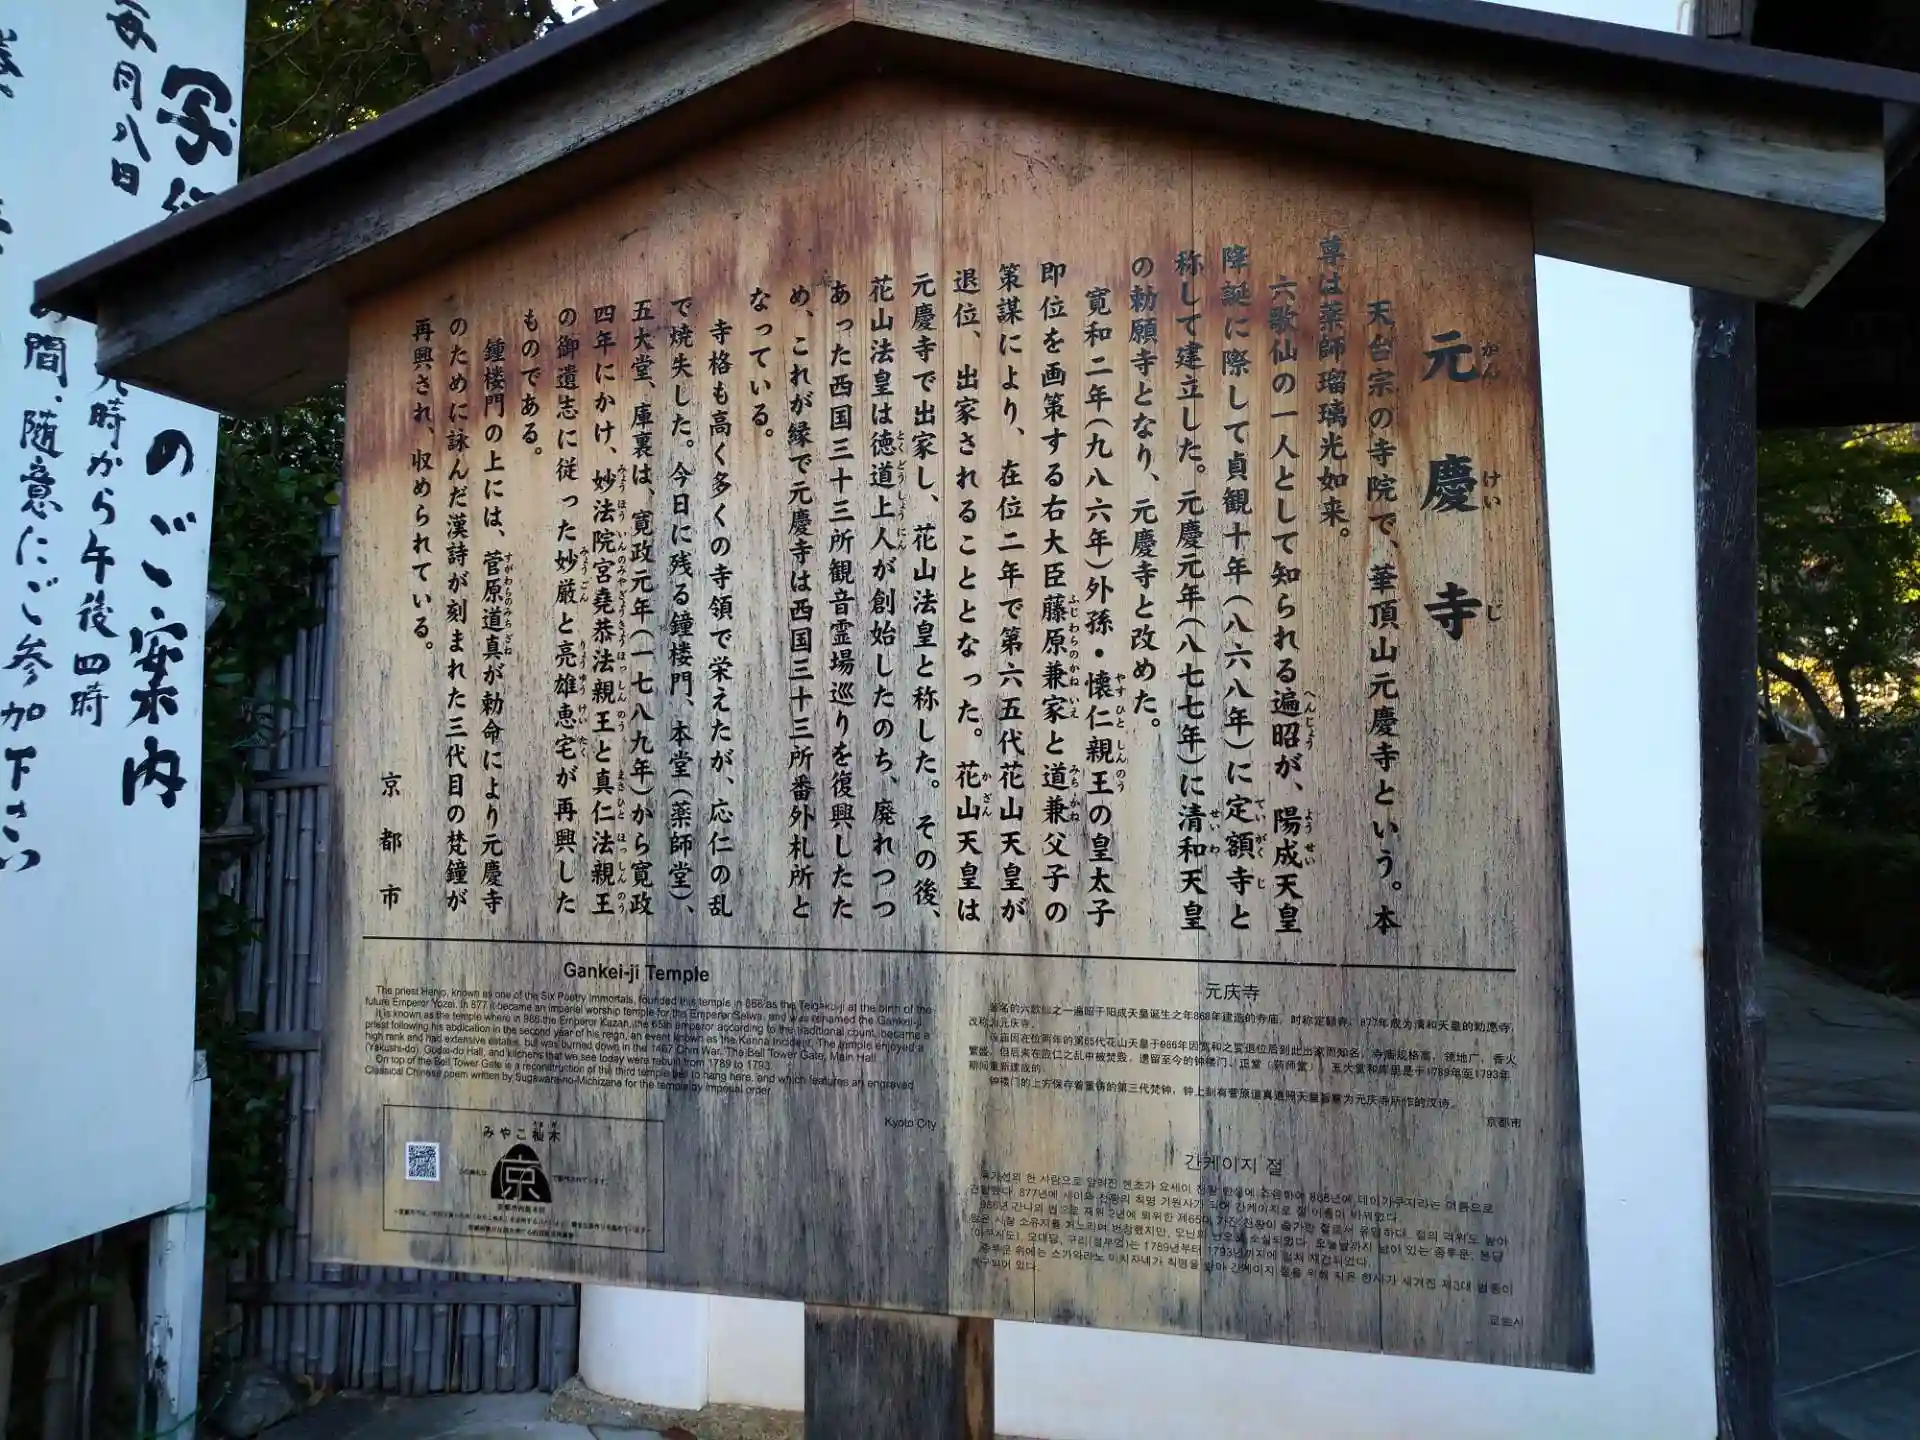 元慶寺
がん けい じ
天台宗の寺院で、華頂山元慶寺という。本
尊は薬師瑠璃光如来。
六歌仙の一人として知られる遍昭が、陽成天皇
降誕に際して貞観十年(八六八年)に定額寺と
称して建立した。元慶元年(八七七年)に清和天皇
の勅願寺となり、元慶寺と改めた。
寛和二年(九八六年)外孫・懐仁親王の皇太子
即位を画策する右大臣藤原兼家と道兼父子の
策謀により、在位二年で第六五代花山天皇が
退位、出家されることとなった。花山天皇は
元慶寺で出家し、花山法皇と称した。その後、
花山法皇は徳道上人が創始したのち、廃れつつ
あった西国三十三所観音霊場巡りを復興したた
め、これが縁で元慶寺は西国三十三所番外札所と
なっている。
寺格も高く多くの寺領で栄えたが、応仁の乱
で焼失した。今日に残る鐘楼門、本堂(薬師堂)、
五大堂、庫裏は、寛政元年(一七八九年)から寛政
四年にかけ、妙法院宮堯恭法親王と真仁法親王
の御遺志に従った妙厳と亮雄恵宅が再興した
ものである。
鍾楼門の上には、菅原道真が勅命により元慶寺
のために詠んだ漢詩が刻まれた三代目の梵鐘が
再興され、収められている。
京都市
Gankei-ji Temple
The priest Henjo, known as one of the Six Poetry Immortals, founded this temple in 868 as the Teigaku-ji at the birth of the
future Emperor Yozei. In 877 it became an imperial worship temple for the Emperor Seiwa, and was renamed the Gankei-ji.
It is known as the temple where in 986 the Emperor Kazan, the 65th emperor according to the traditional count, became a
priest following his abdication in the second year of his reign, an event known as the Kanna Incident. The temple enjoyed a
high rank and had extensive estates, but was burned down in the 1467 Onin War. The Bell Tower Gate, Main Hall
(Yakushi-do), Godai-do Hall, and kitchens that we see today were rebuilt from 1789 to 1793.
On top of the Bell Tower Gate is a reconstruction of the third temple bell to hang here, and which features an engraved
Classical Chinese poem written by Sugawara-no-Michizane for the temple by imperial order.
Kyoto City
元庆寺
著名的六歌仙之一遍昭于阳成天皇诞生之年868年建造的寺庙，时称定额寺，877年成为清和天皇的勅愿寺，
改称为元庆寺。
该庙因在位两年的第65代花山天皇于986年因宽和之变退位后到此出家而知名，寺庙规格高，领地广，香火
繁盛，但后来在应仁之乱中被焚毁，遗留至今的钟楼门、正堂（药师堂）、五大堂和库里是于1789年至1793年
期间重新建成的。
钟楼门的上方保存着重铸的第三代梵钟，钟上刻有菅原道真遵照天皇旨意为元庆寺所作的汉诗。
京都市
간케이지 절
교토시
みやこ杣木
京
写
のご案内
毎月八日
時から午後四時
の間、随意にご参加下さい